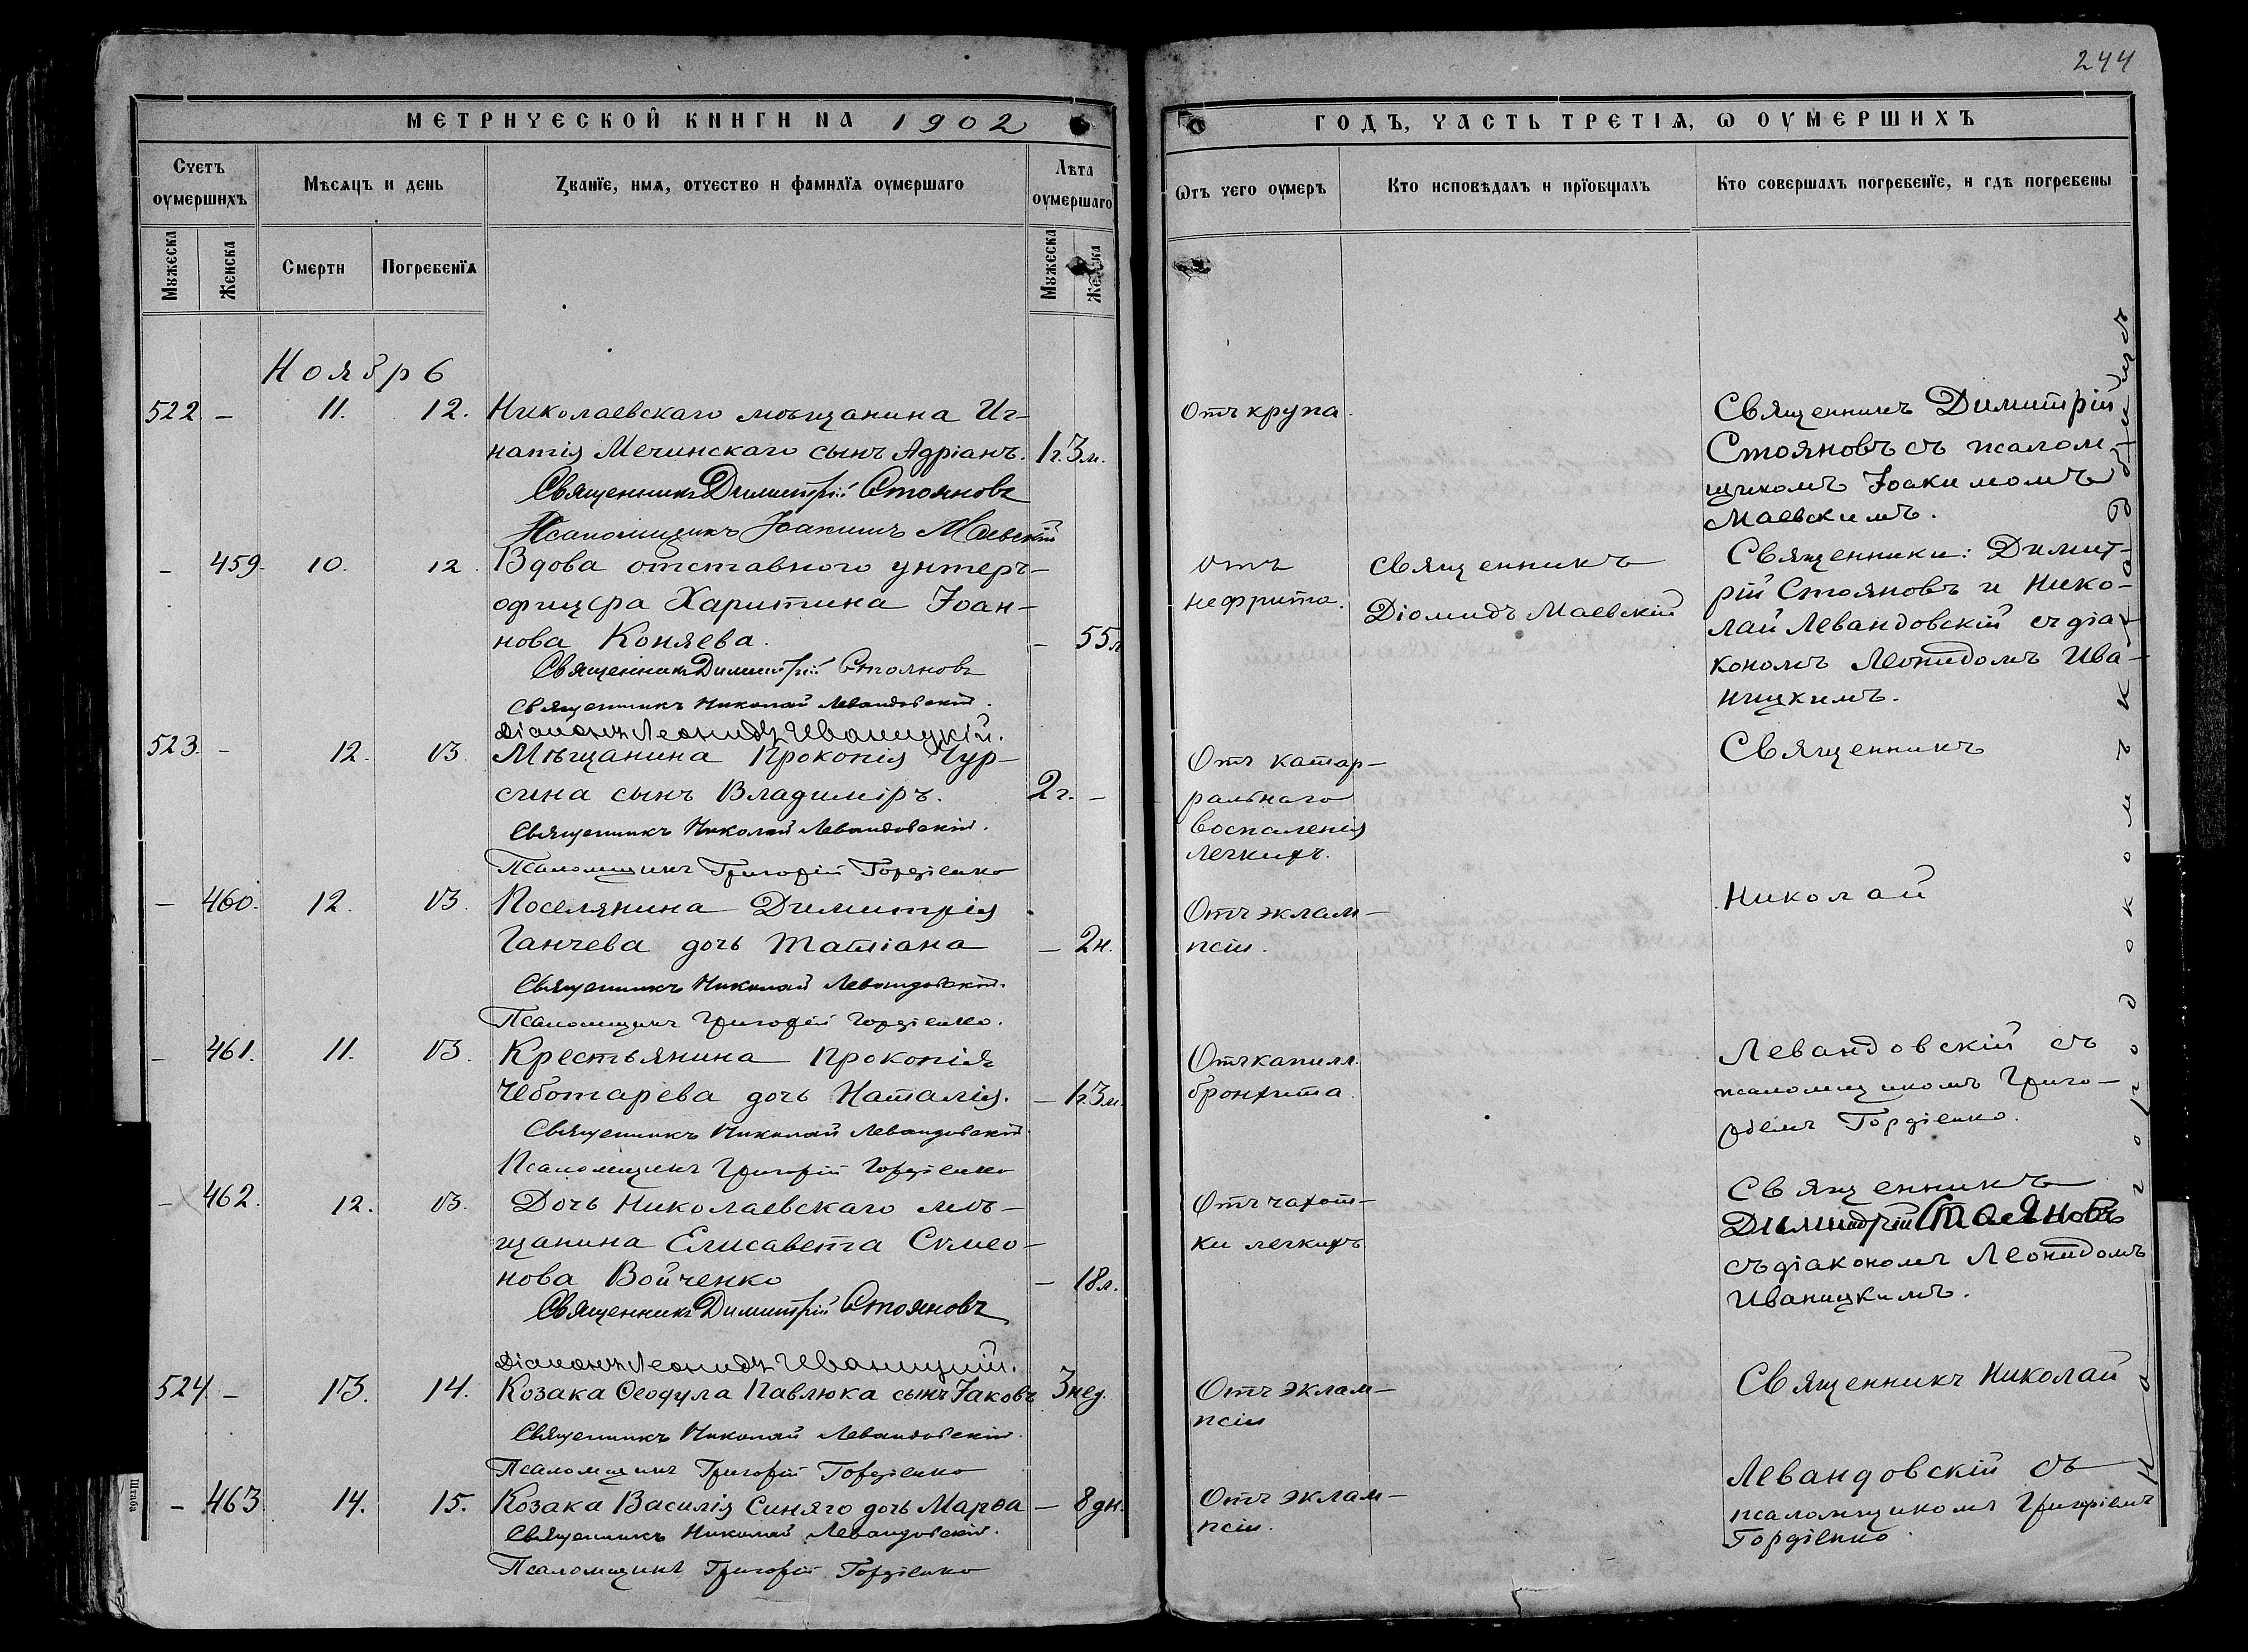 244
МЕТРИЧЕСКОЙ КНИГИ НА 1902
ГОДЪ, ЧАСТЬ ТРЕТІѦ, Ѡ ОУМЕРШИХЪ
Счетъ оумершихъ
Мѣсѧцъ и день
Званїе, имѧ, отчество и фамилїѧ оумершаго
Лѣта оумершаго
Ѿтъ чего оумеръ
Кто исповѣдалъ и прїобщалъ
Кто совершалъ погребенїе, и гдѣ погребены
Мꙋжеска
Женска
Смерти
Погребенїѧ
Мꙋжеска
Женска
Ноябрь
522. – 11. 12. Николаевскаго мѣщанина Иг-
натія Мечинскаго сынъ Адріанъ. 1г.3м.
Священникъ Димитрій Стояновъ
Псаломщикъ Іоакимъ Маевскій
Отъ крупа.
Священникъ Димитрій
Стояновъ съ псалом
щикомъ Іоакимомъ
Маевскимъ.
– 459. 10. 12. Вдова отставного унтеръ-
офицера Харитина Іоан-
нова Коняева. – 55л
Священникъ Димитрій Стояновъ
Священникъ Николай Левандовскій.
Діаконъ Леонидъ Иваницкій.
Отъ
нефрита.
Священникъ
Діомидъ Маевскій
Священники: Димит-
рій Стояновъ и Нико-
лай Левандовскій съ діа-
кономъ Леонидомъ Ива-
ницкимъ.
523. – 12. 13. Мѣщанина Прокопія Чур-
сина сынъ Владиміръ. 2г. –
Священникъ Николай Левандовскій.
Псаломщикъ Григорій Гордіенко
Отъ катар-
ральнаго
воспаленія
легкихъ.
Священникъ
– 460. 12. 13. Поселянина Димитрія
Ганчева дочь Татіана – 2н.
Священникъ Николай Левандовскій.
Псаломщикъ Григорій Гордіенко.
Отъ эклам-
псіи.
Николай
– 461. 11. 13. Крестьянина Прокопія
Чеботарева дочь Наталія. – 1г.3м.
Священникъ Николай Левандовскій.
Псаломщикъ Григорій Гордіенко
Отъ капилл.
бронхита.
Левандовскій съ
псаломщикомъ Григо-
ріемъ Гордіенко.
– 462. 12. 13. Дочь Николаевскаго мѣ-
щанина Елисавета Симео-
нова Войченко – 18л.
Священникъ Димитрій Стояновъ
Діаконъ Леонидъ Иваницкій.
Отъ чахот-
ки легкихъ
Священникъ
Димитрій Стояновъ
съ діакономъ Леонидомъ
Иваницкимъ.
524. – 13. 14. Козака Ѳеодула Павлюка сынъ Іаковъ 3 нед.
Священникъ Николай Левандовскій.
Псаломщикъ Григорій Гордіенко
Отъ эклам-
псіи
Священникъ Николай
– 463 14. 15. Козака Василія Синяго дочь Марѳа – 8 дн.
Священникъ Николай Левандовскій.
Псаломщикъ Григорій Гордіенко
Отъ эклам-
псіи.
Левандовскій съ
псаломщикомъ Григоріемъ
Гордіенко.
На городскомъ кладбищѣ
Штаба